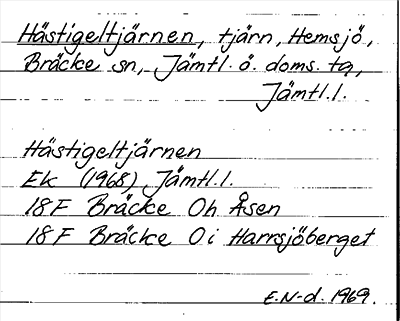 Hästigeltjärnen, tjärn, Hemsjö,
Bräcke sn, Jämtl. ö. doms. tg,
Jämtl.l.
Hästigeltjärnen
Ek (1968) Jämtl.l.
18F Bräcke 0h Åsen
18F Bräcke 0i Harrsjöberget
E.N-d. 1969.